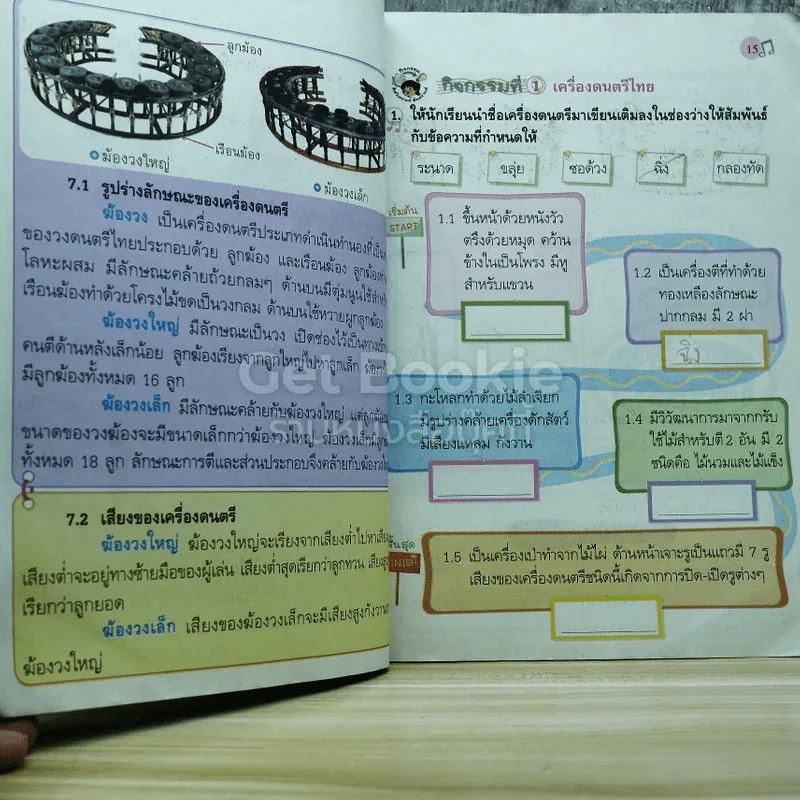 ลูกฆ้อง
เรือนฆ้อง
ฆ้องวงใหญ่
ฆ้องวงเล็ก
7.1 รูปร่างลักษณะของเครื่องดนตรี
ฆ้องวง เป็นเครื่องดนตรีประเภทดำเนินทำนองที่เป็น
ของวงดนตรีไทยประกอบด้วย ลูกฆ้อง และเรือนฆ้อง ลูกฆ้อง
โลหะผสม มีลักษณะคล้ายถ้วยกลมๆ ด้านบนมีตุ่มนูนใช้สำหรับ
เรือนฆ้องทำด้วยโครงไม้ขดเป็นวงกลม ด้านบนใช้หวายผูกลูกฆ้อง
ฆ้องวงใหญ่ มีลักษณะเป็นวง เปิดช่องไว้เป็นทาง
คนตีด้านหลังเล็กน้อย ลูกฆ้องเรียงจากลูกใหญ่ไปหาลูกเล็ก
มีลูกฆ้องทั้งหมด 16 ลูก
ฆ้องวงเล็ก มีลักษณะคล้ายกับฆ้องวงใหญ่ แต่ลูกฆ้อง
ขนาดของวงฆ้องจะมีขนาดเล็กกว่าฆ้องวงใหญ่ ฆ้องวงเล็กมีลูก
ทั้งหมด 18 ลูก ลักษณะการตีและส่วนประกอบจึงคล้ายกับฆ้องวง
7.2 เสียงของเครื่องดนตรี
ฆ้องวงใหญ่ ฆ้องวงใหญ่จะเรียงจากเสียงต่ำไปหาเสียง
เสียงต่ำจะอยู่ทางซ้ายมือของผู้เล่น เสียงต่ำสุดเรียกว่าลูกทวน
เรียกว่าลูกยอด
ฆ้องวงเล็ก เสียงของฆ้องวงเล็กจะมีเสียงสูงกังวาน
ฆ้องวงใหญ่
15
กิจกรรมที่ 1 เครื่องดนตรีไทย
1. ให้นักเรียนนำชื่อเครื่องดนตรีมาเขียนเติมลงในช่องว่างให้สัมพันธ์
กับข้อความที่กำหนดให้
ระนาด ขลุ่ย ซอด้วง ฉิ่ง กลองทัด
เริ่มต้น
START
1.1 ขึ้นหน้าด้วยหนังวัว
ตรึงด้วยหมุด คว้าน
ข้างในเป็นโพรง มีหู
สำหรับแขวน
1.2 เป็นเครื่องตีที่ทำด้วย
ทองเหลืองลักษณะ
ปากกลม มี 2 ฝา
ฉิ่ง
1.3 กะโหลกทำด้วยไม้ลำเจียก
มีรูปร่างคล้ายเครื่องดักสัตว์
มีเสียงแหลม กังวาน
1.4 มีวิวัฒนาการมาจากกรับ
ใช้ไม้สำหรับตี 2 อัน มี 2
ชนิดคือ ไม้นวมและไม้แข็ง
1.5 เป็นเครื่องเป่าทำจากไม้ไผ่ ด้านหน้าเจาะรูเป็นแถวมี 7 รู
เสียงของเครื่องดนตรีชนิดนี้เกิดจากการปิด-เปิดรูต่างๆ
Get Bookie